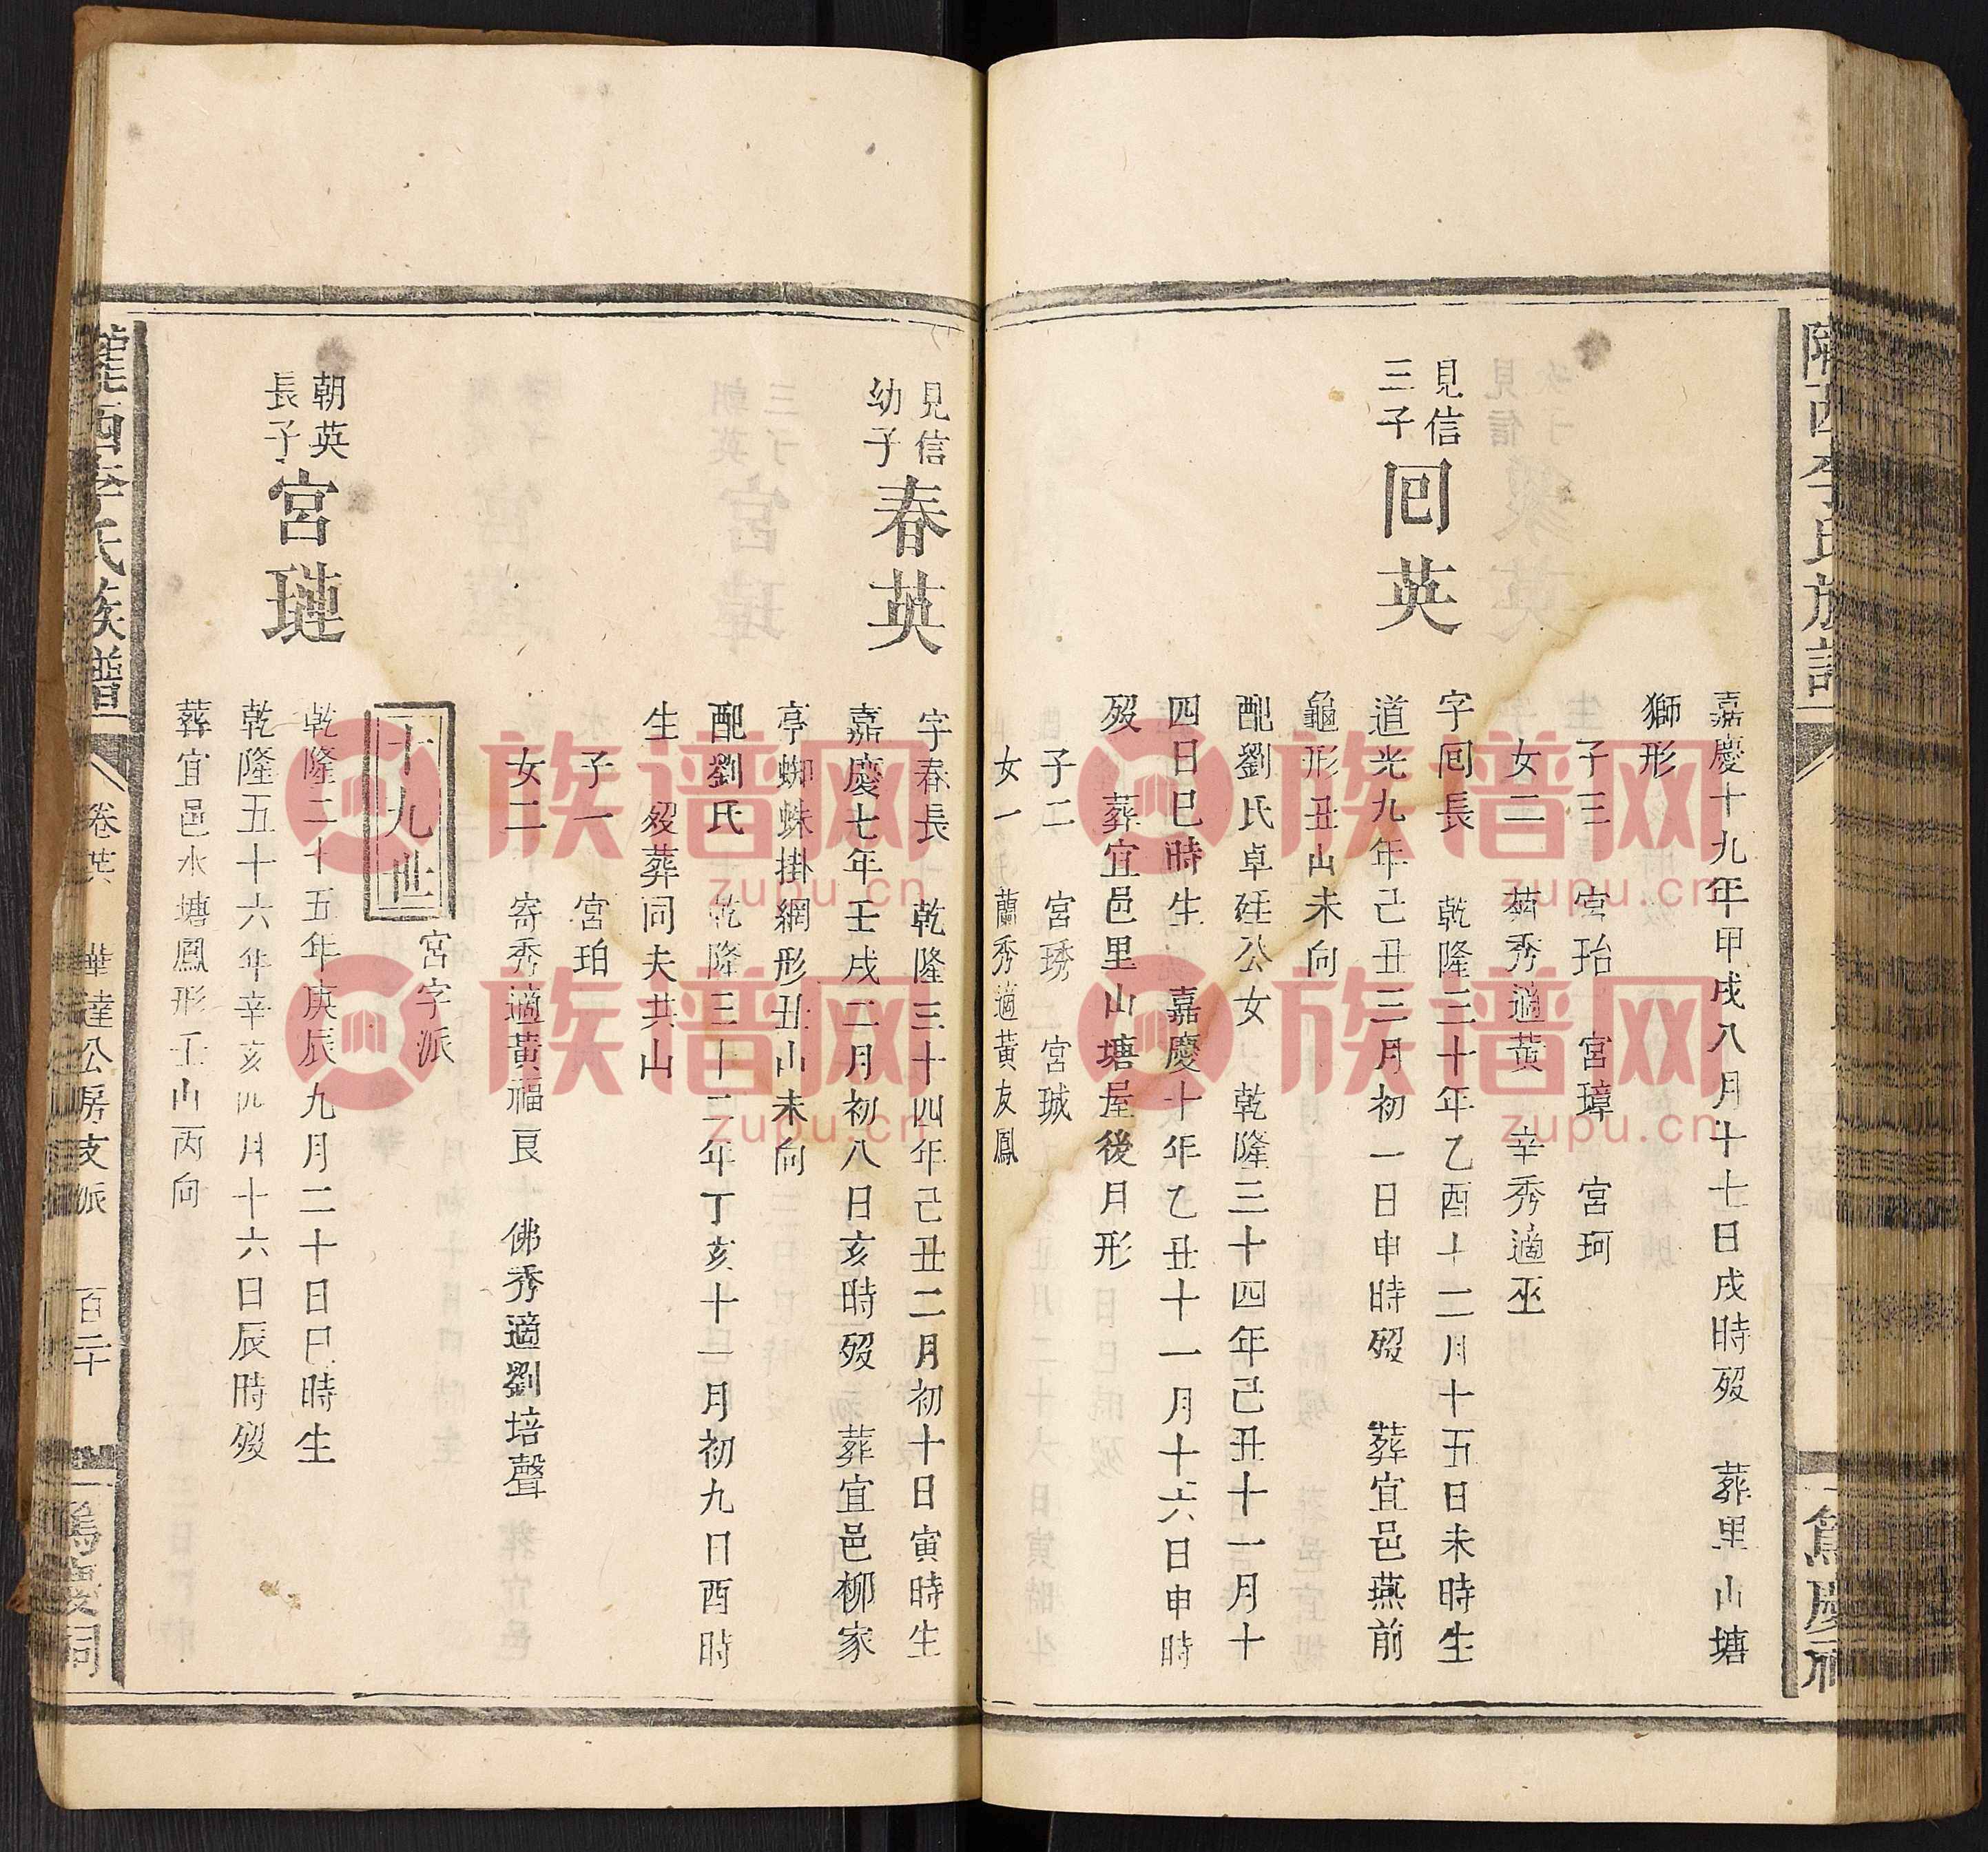 隴西李氏族譜
篤慶祠
嘉慶十九年甲戌八月十七日戌時歿 葬里山塘
獅形
子三 宮珆 宮璋 宮珂
女二 菊秀適黃 辛秀適巫
見信
三子
囘英
字囘長 乾隆三十年乙酉十二月十五日未時生
道光九年己丑三月初一日申時歿 葬宜邑燕前
龜形丑山未向
配劉氏卓廷公女 乾隆三十四年己丑十一月十
四日巳時生 嘉慶十年乙丑十一月十六日申時
歿 葬宜邑里山塘屋後月形
子二 宮琇 宮珹
女一 蘭秀適黃友鳳
見信
幼子
春英
字春長 乾隆三十四年己丑二月初十日寅時生
嘉慶七年壬戌二月初八日亥時歿 葬宜邑柳家
亭蜘蛛掛網形丑山未向
配劉氏 乾隆三十二年丁亥十一月初九日酉時
生 歿葬同夫共山
子一 宮珀
女二 寄秀適黃福艮 佛秀適劉培聲
十九世
宮字派
朝英
長子
宮璉
乾隆二十五年庚辰九月二十日巳時生
乾隆五十六年辛亥四月十六日辰時歿
葬宜邑水塘鳳形壬山丙向
隴西李氏族譜
卷 達公房支派
百二十
篤慶祠
族谱网
zupu.cn
族谱网
zupu.cn
族谱网
zupu.cn
族谱网
zupu.cn